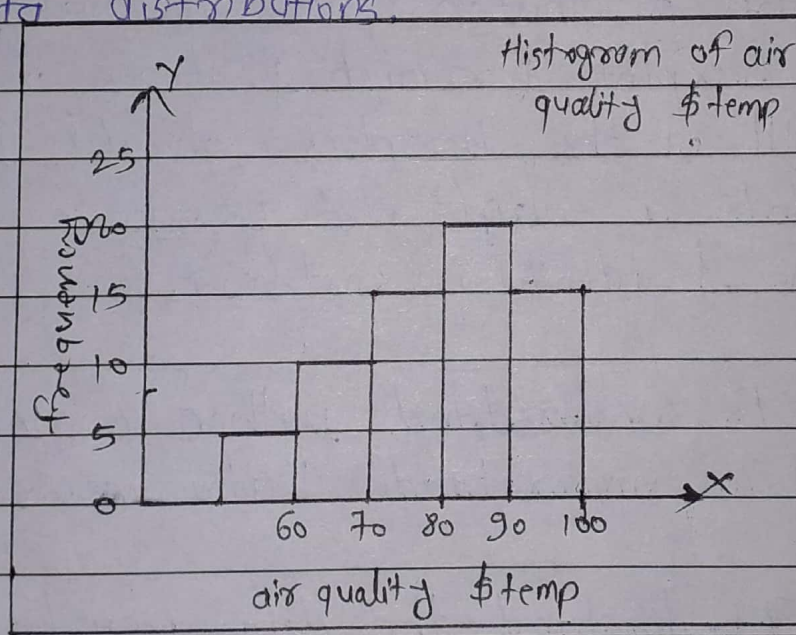 distributions.
Histogram of air
quality $ temp
Y
25
20
15
10
5
0
frequency
X
60 70 80 90 100
air quality $ temp